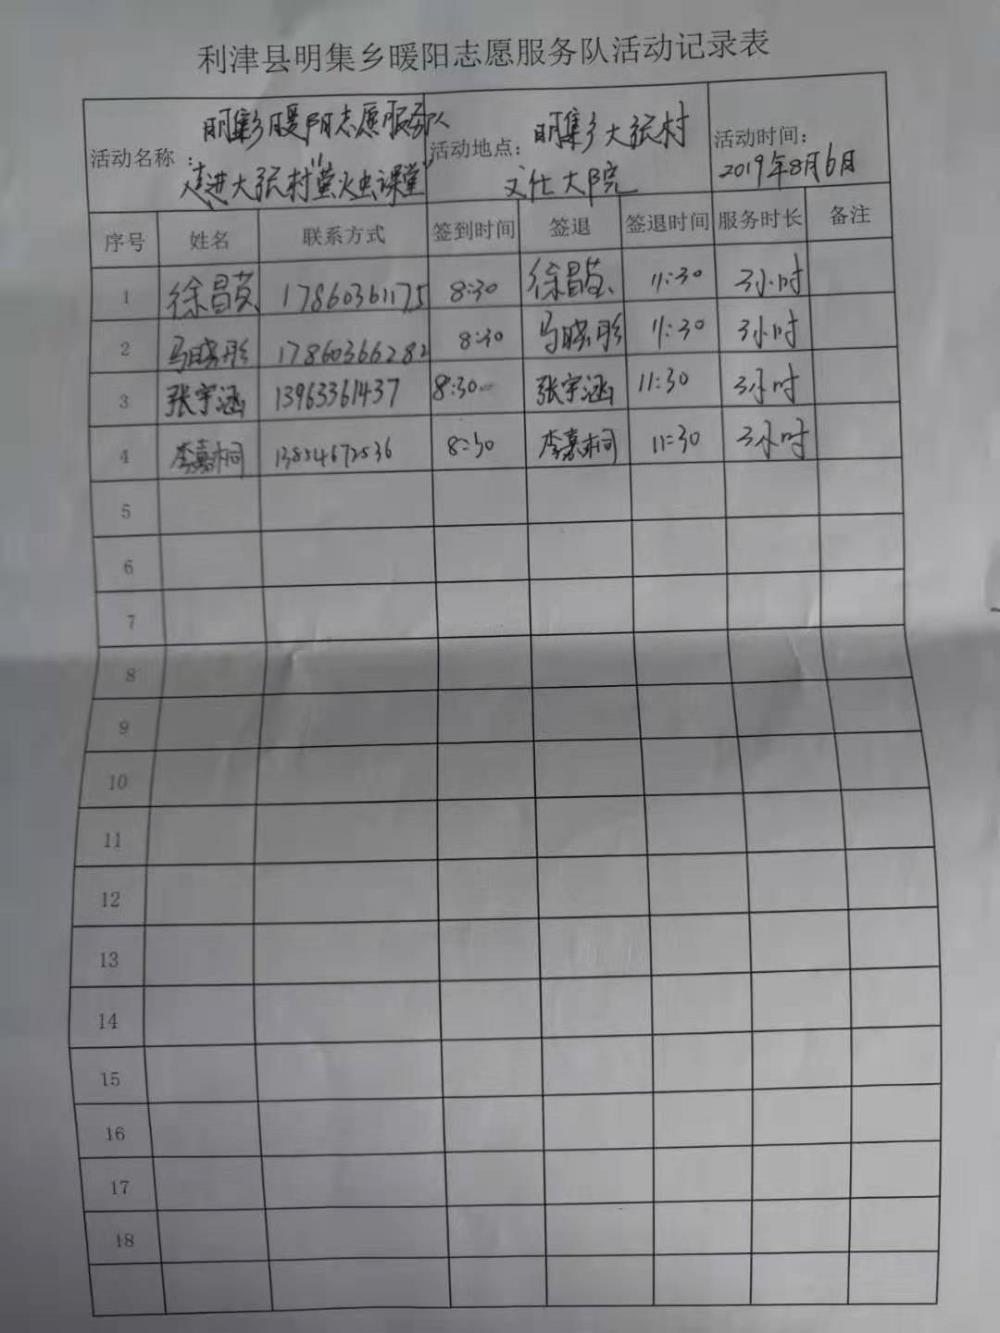 利津县明集乡暖阳志愿服务队活动记录表
活动名称：明集乡暖阳志愿服务队
走进大张村"萤火虫课堂"
活动地点：明集乡大张村
文化大院
活动时间：
2019年8月6月
序号 姓名 联系方式 签到时间 签退 签退时间 服务时长 备注
1 徐昌英 17860361175 8:30 徐昌英 11:30 3小时
2 马晓彤 17860366282 8:30 马晓彤 11:30 3小时
3 张宇涵 13963361437 8:30 张宇涵 11:30 3小时
4 李嘉桐 13854672536 8:30 李嘉桐 11:30 3小时
5
6
7
8
9
10
11
12
13
14
15
16
17
18